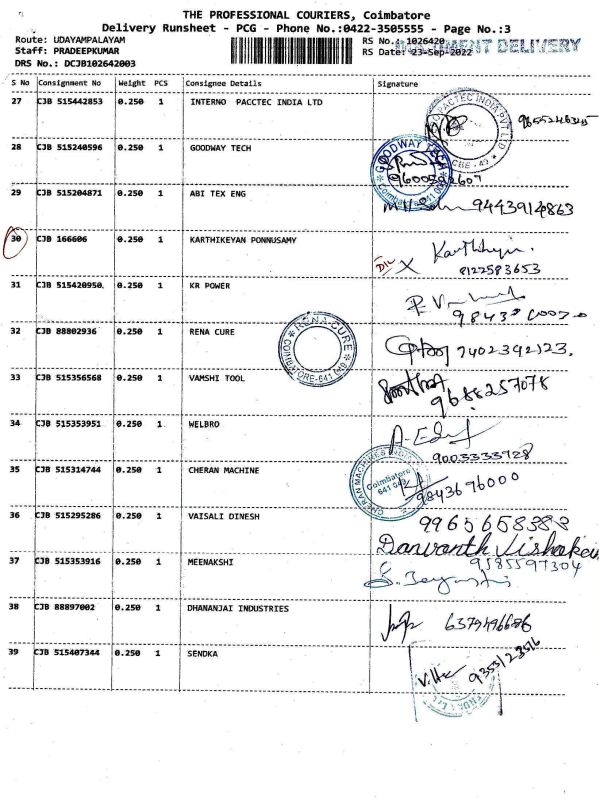 THE PROFESSIONAL COURIERS, Coimbatore
Delivery Runsheet - PCG - Phone No.:0422-3505555 - Page No.:3
Route: UDAYAMPALAYAM RS No.: 1026420
Staff: PRADEEPKUMAR RS Date: 23-Sep-2022 DELIVERY
DRS No.: DCJB102642003
S No Consignment No Weight PCS Consignee Details Signature
27 CJB 515442853 0.250 1 INTERNO PACCTEC INDIA LTD
28 CJB 515240596 0.250 1 GOODWAY TECH
GOODWAY TECH
29 CJB 515204871 0.250 1 ABI TEX ENG
9443914863
30 CJB 166606 0.250 1 KARTHIKEYAN PONNUSAMY
8122583653
31 CJB 515420950 0.250 1 KR POWER
32 CJB 88802936 0.250 1 RENA CURE
RENA CURE
COIMBATORE-641 049
7402392123.
33 CJB 515356568 0.250 1 VAMSHI TOOL
9688257078
34 CJB 515353951 0.250 1 WELBRO
9003333728
35 CJB 515314744 0.250 1 CHERAN MACHINE
CHERAN MACHINES INDIA
Coimbatore
641 049
9843676000
36 CJB 515295286 0.250 1 VAISALI DINESH
9965658388
37 CJB 515353916 0.250 1 MEENAKSHI
9585597304
38 CJB 88897002 0.250 1 DHANANJAI INDUSTRIES
6379496686
39 CJB 515407344 0.250 1 SENDKA